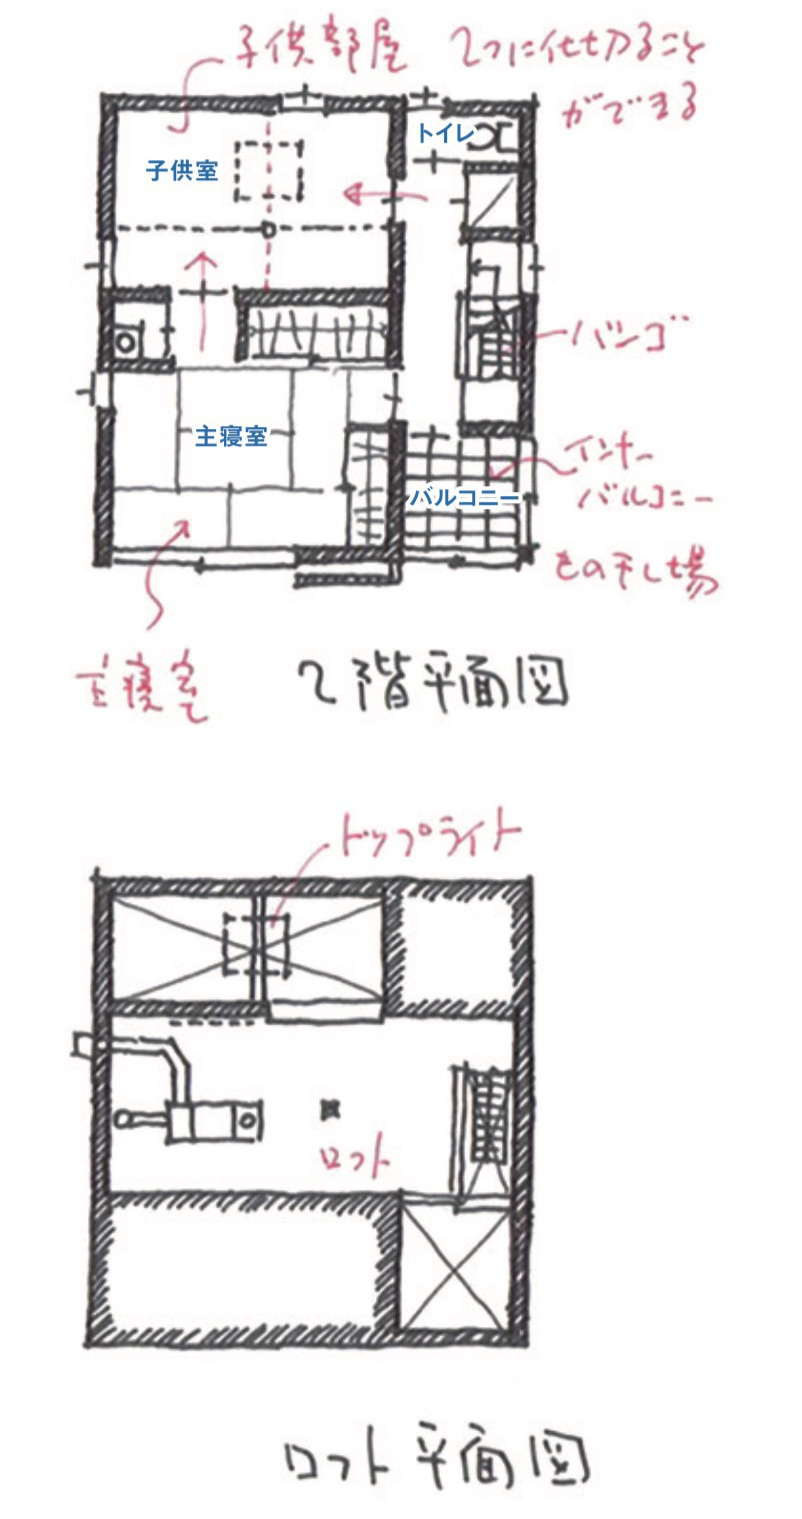 子供部屋 2つに仕切ること
ができる
トイレ
子供室
ハシゴ
主寝室
インナー
バルコニー
バルコニー
もの干し場
主寝室
2階平面図
トップライト
ロフト
ロフト平面図